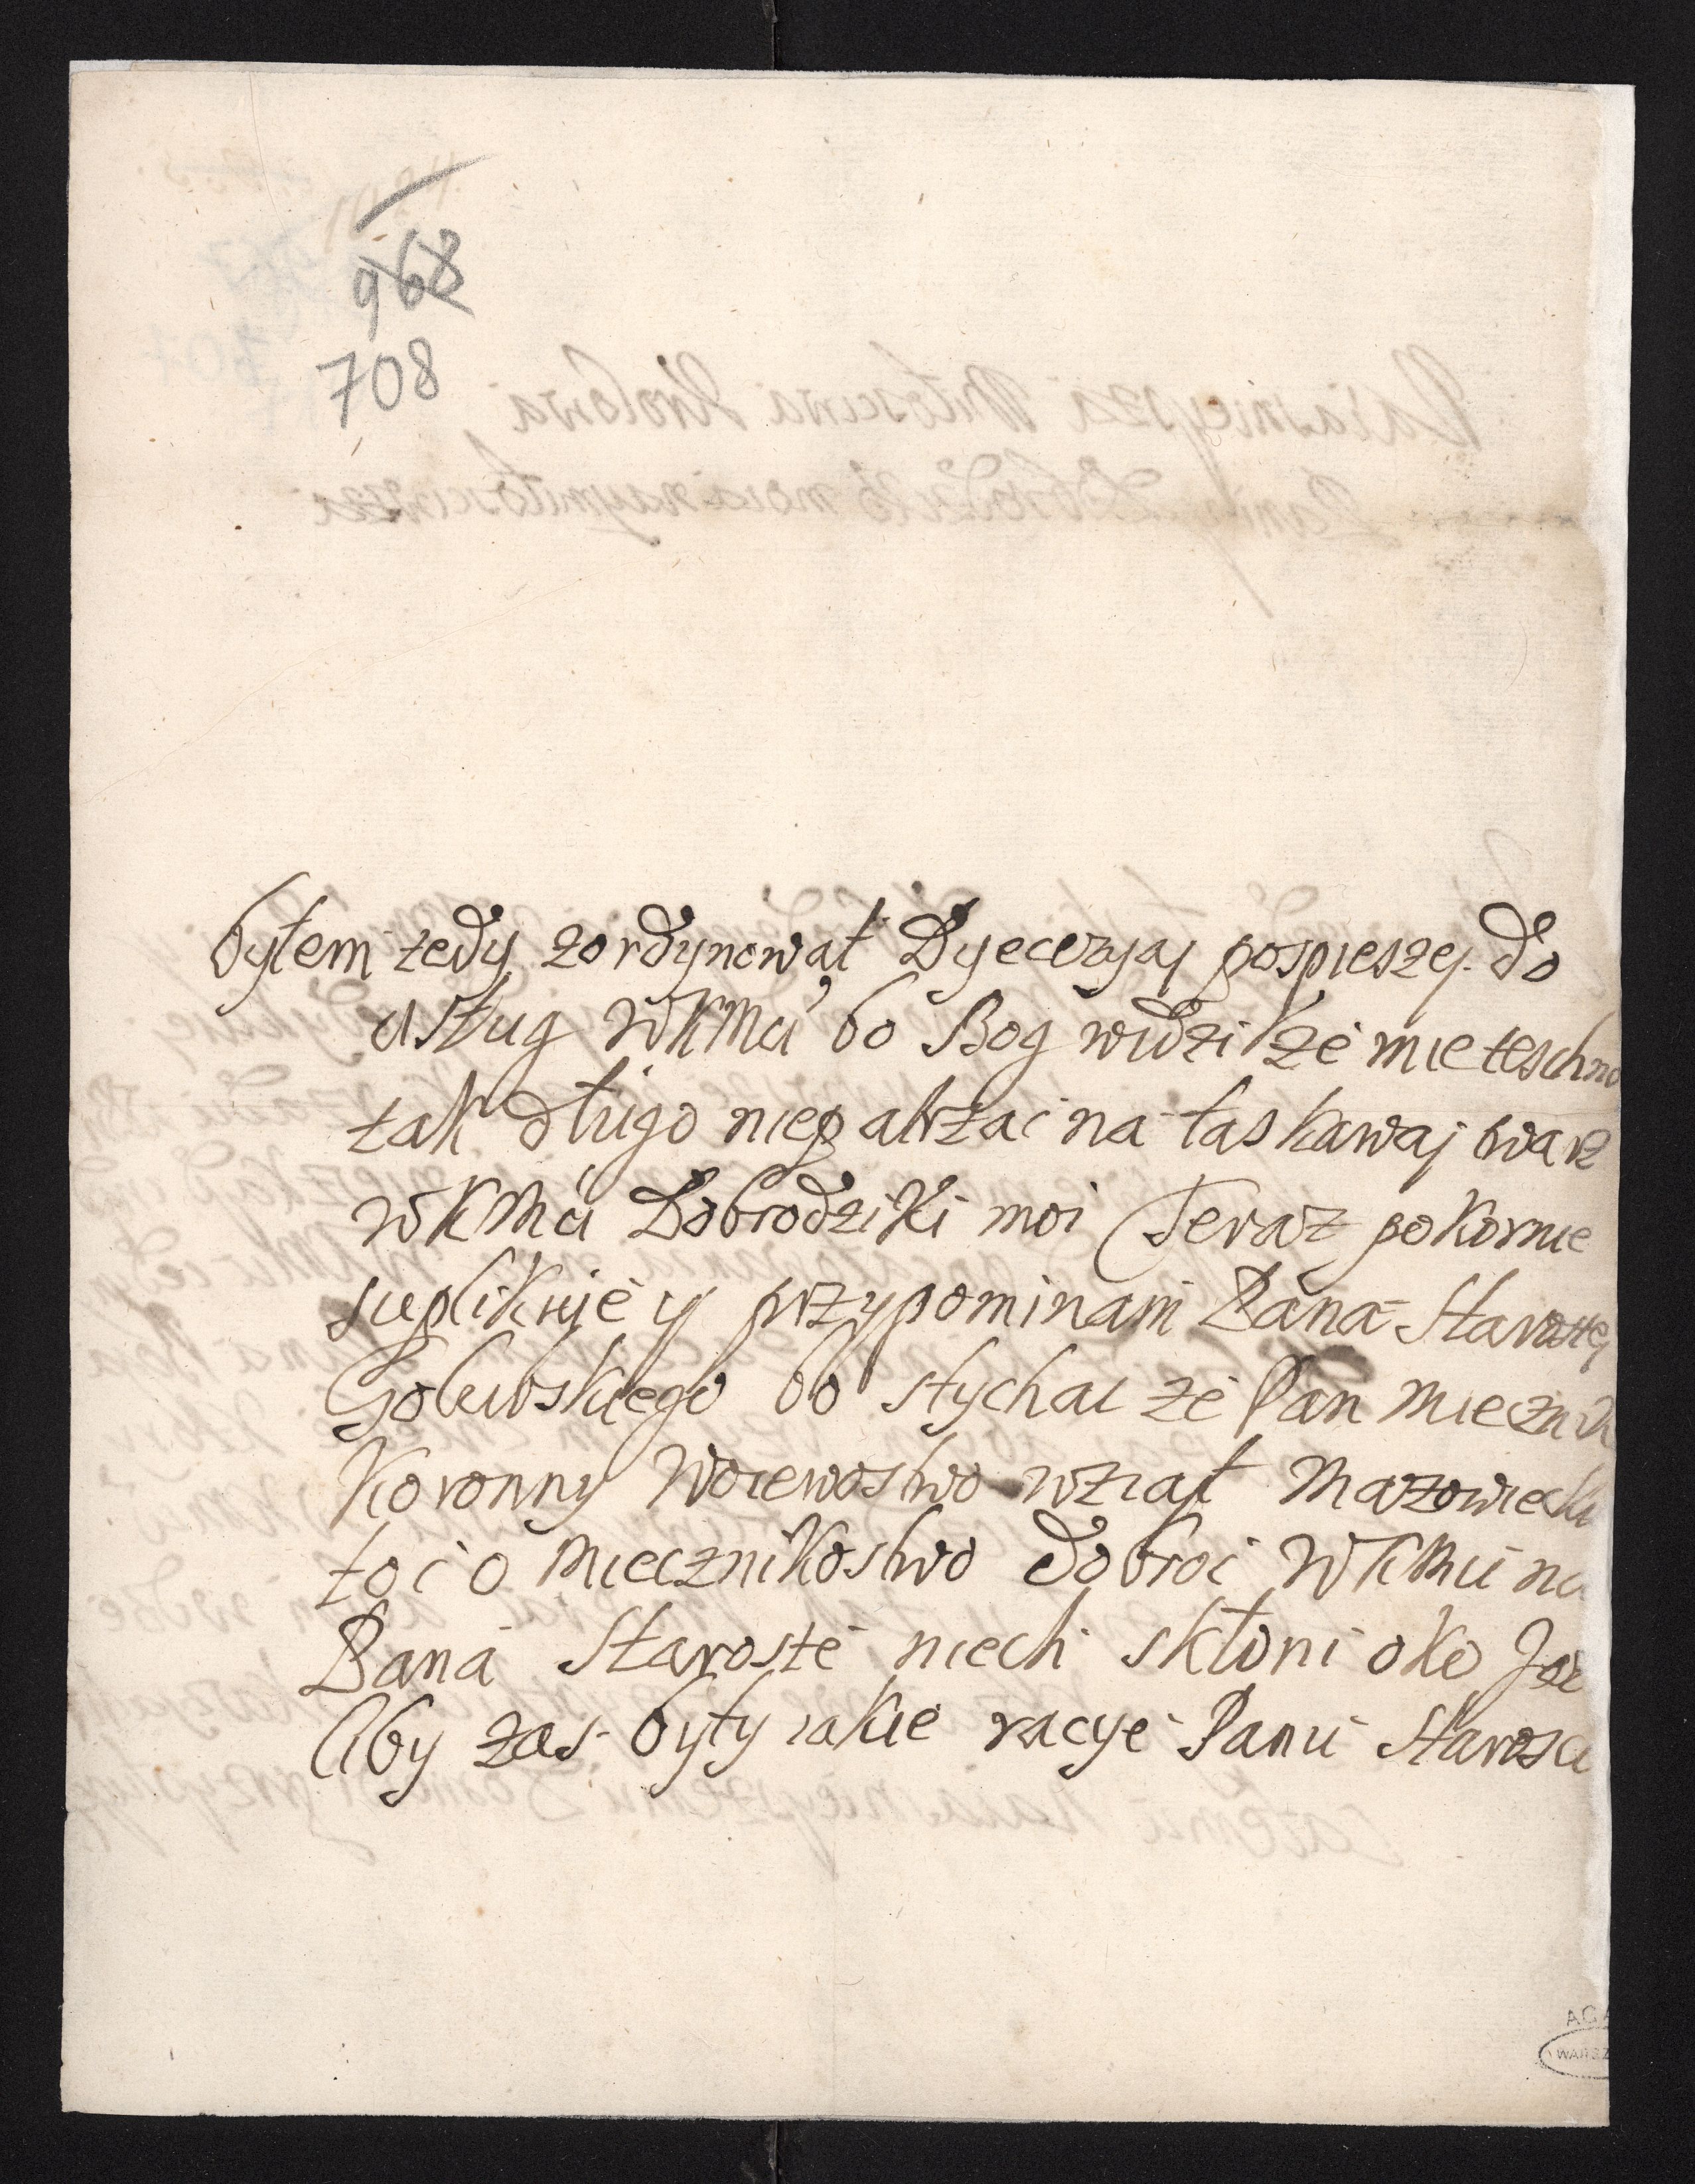 968
708
bytem tedy zordynowat Dyecezyaj pospieszej do
usług WKMci bo Bog widzi że mie teschno
tak długo niepatrzac na łaskawaj twarz
WKMci Dobrodziki moi Teraz pokornie
suplikuje y przypominam Pana Staroste
Golubskiego bo słychac że Pan Miecznik
Koronny Woiewostwo wziąt Mazowiecki
to i o Miecznikostwo dobroc WKMci na
Pana Staroste niech skłoni oko Jez
liby zas były iakie racye Panu Starosci
AGA
WARSZ